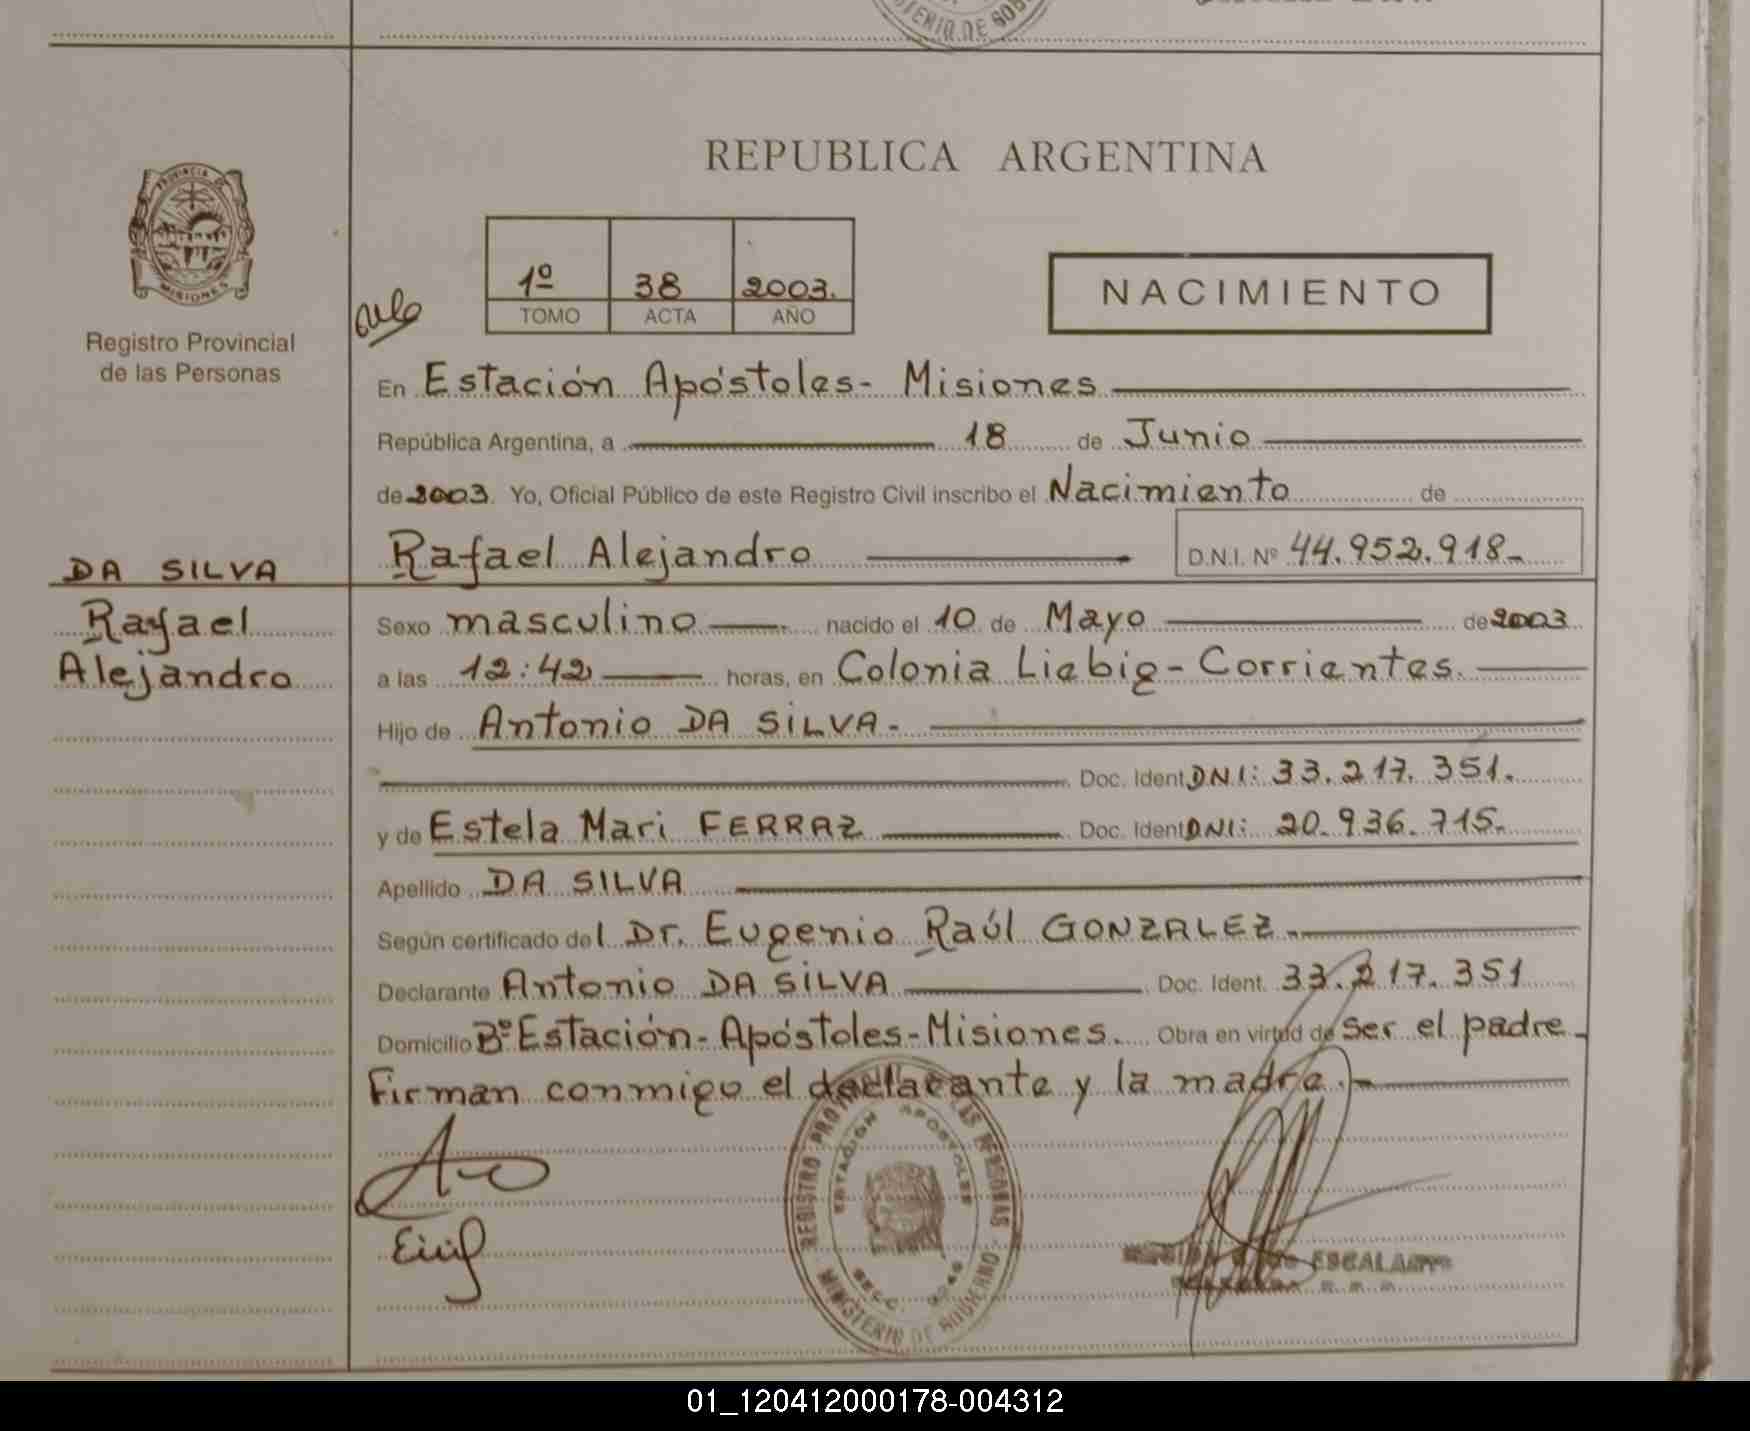 MINISTERIO DE GOB
REPUBLICA ARGENTINA
PROVINCIA
MISIONES
Registro Provincial
de las Personas
1º 38 2003.
TOMO ACTA AÑO
NACIMIENTO
En Estación Apóstoles- Misiones
República Argentina, a 18 de Junio
de 2003. Yo, Oficial Público de este Registro Civil inscribo el Nacimiento de
DA SILVA
Rafael
Alejandro
Rafael Alejandro D.N.I. Nº 44.952.918-
Sexo masculino nacido el 10 de Mayo de 2003
a las 12:42 horas, en Colonia Liebig- Corrientes.
Hijo de Antonio DA SILVA-
Doc. Ident. DNI: 33.217.351.
y de Estela Mari FERRAZ Doc. Ident DNI: 20.936.715-
Apellido DA SILVA
Según certificado del Dr. Eugenio Raúl GONZALEZ-
Declarante Antonio DA SILVA Doc. Ident. 33.217.351
Domicilio Bº Estación-Apóstoles-Misiones. Obra en virtud de ser el padre-
Firman conmigo el declarante y la madre.-
REGISTRO PROVINCIAL DE LAS PERSONAS
ESTACIÓN APOSTOLES
MINISTERIO DE GOBIERNO
ESCALANTE
01_120412000178-004312